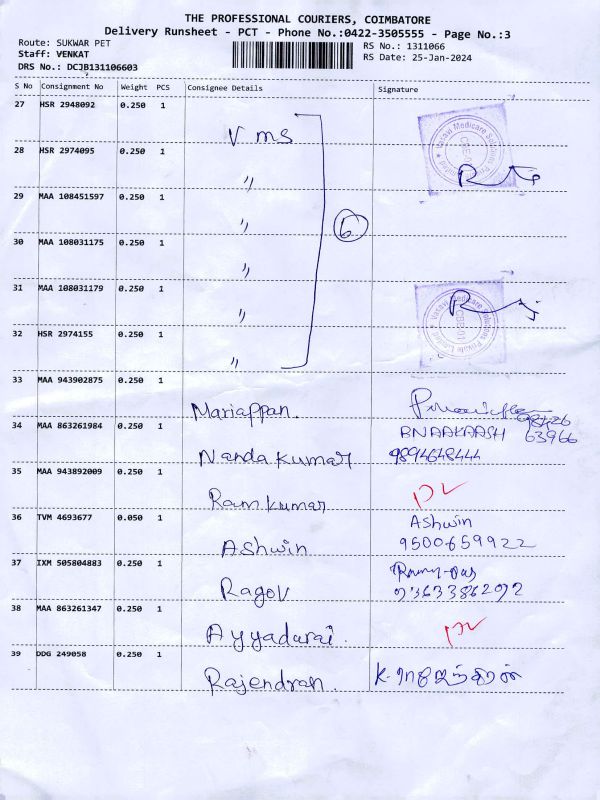 THE PROFESSIONAL COURIERS, COIMBATORE
Delivery Runsheet - PCT - Phone No.:0422-3505555 - Page No.:3
Route: SUKWAR PET
RS No.: 1311066
Staff: VENKAT
RS Date: 25-Jan-2024
DRS No.: DCJB131106603
S No Consignment No Weight PCS Consignee Details Signature
27 HSR 2948092 0.250 1 V ms
28 HSR 2974095 0.250 1 〃
29 MAA 108451597 0.250 1 〃
6
30 MAA 108031175 0.250 1 〃
31 MAA 108031179 0.250 1 〃
32 HSR 2974155 0.250 1 〃
33 MAA 943902875 0.250 1 Mariappan.
34 MAA 863261984 0.250 1 Nanda kumar BNAAKAASH 63966
9894648444
35 MAA 943892009 0.250 1 Ram kumar
36 TVM 4693677 0.050 1 Ashwin Ashwin
9500659922
37 IXM 505804883 0.250 1 Ragov
38 MAA 863261347 0.250 1 Ayyadurai.
39 DDG 249058 0.250 1 Rajendran. K. ராஜேந்திரன்
Vasavi Medicare Solutions Private Limited
Vasavi Medicare Solutions Private Limited